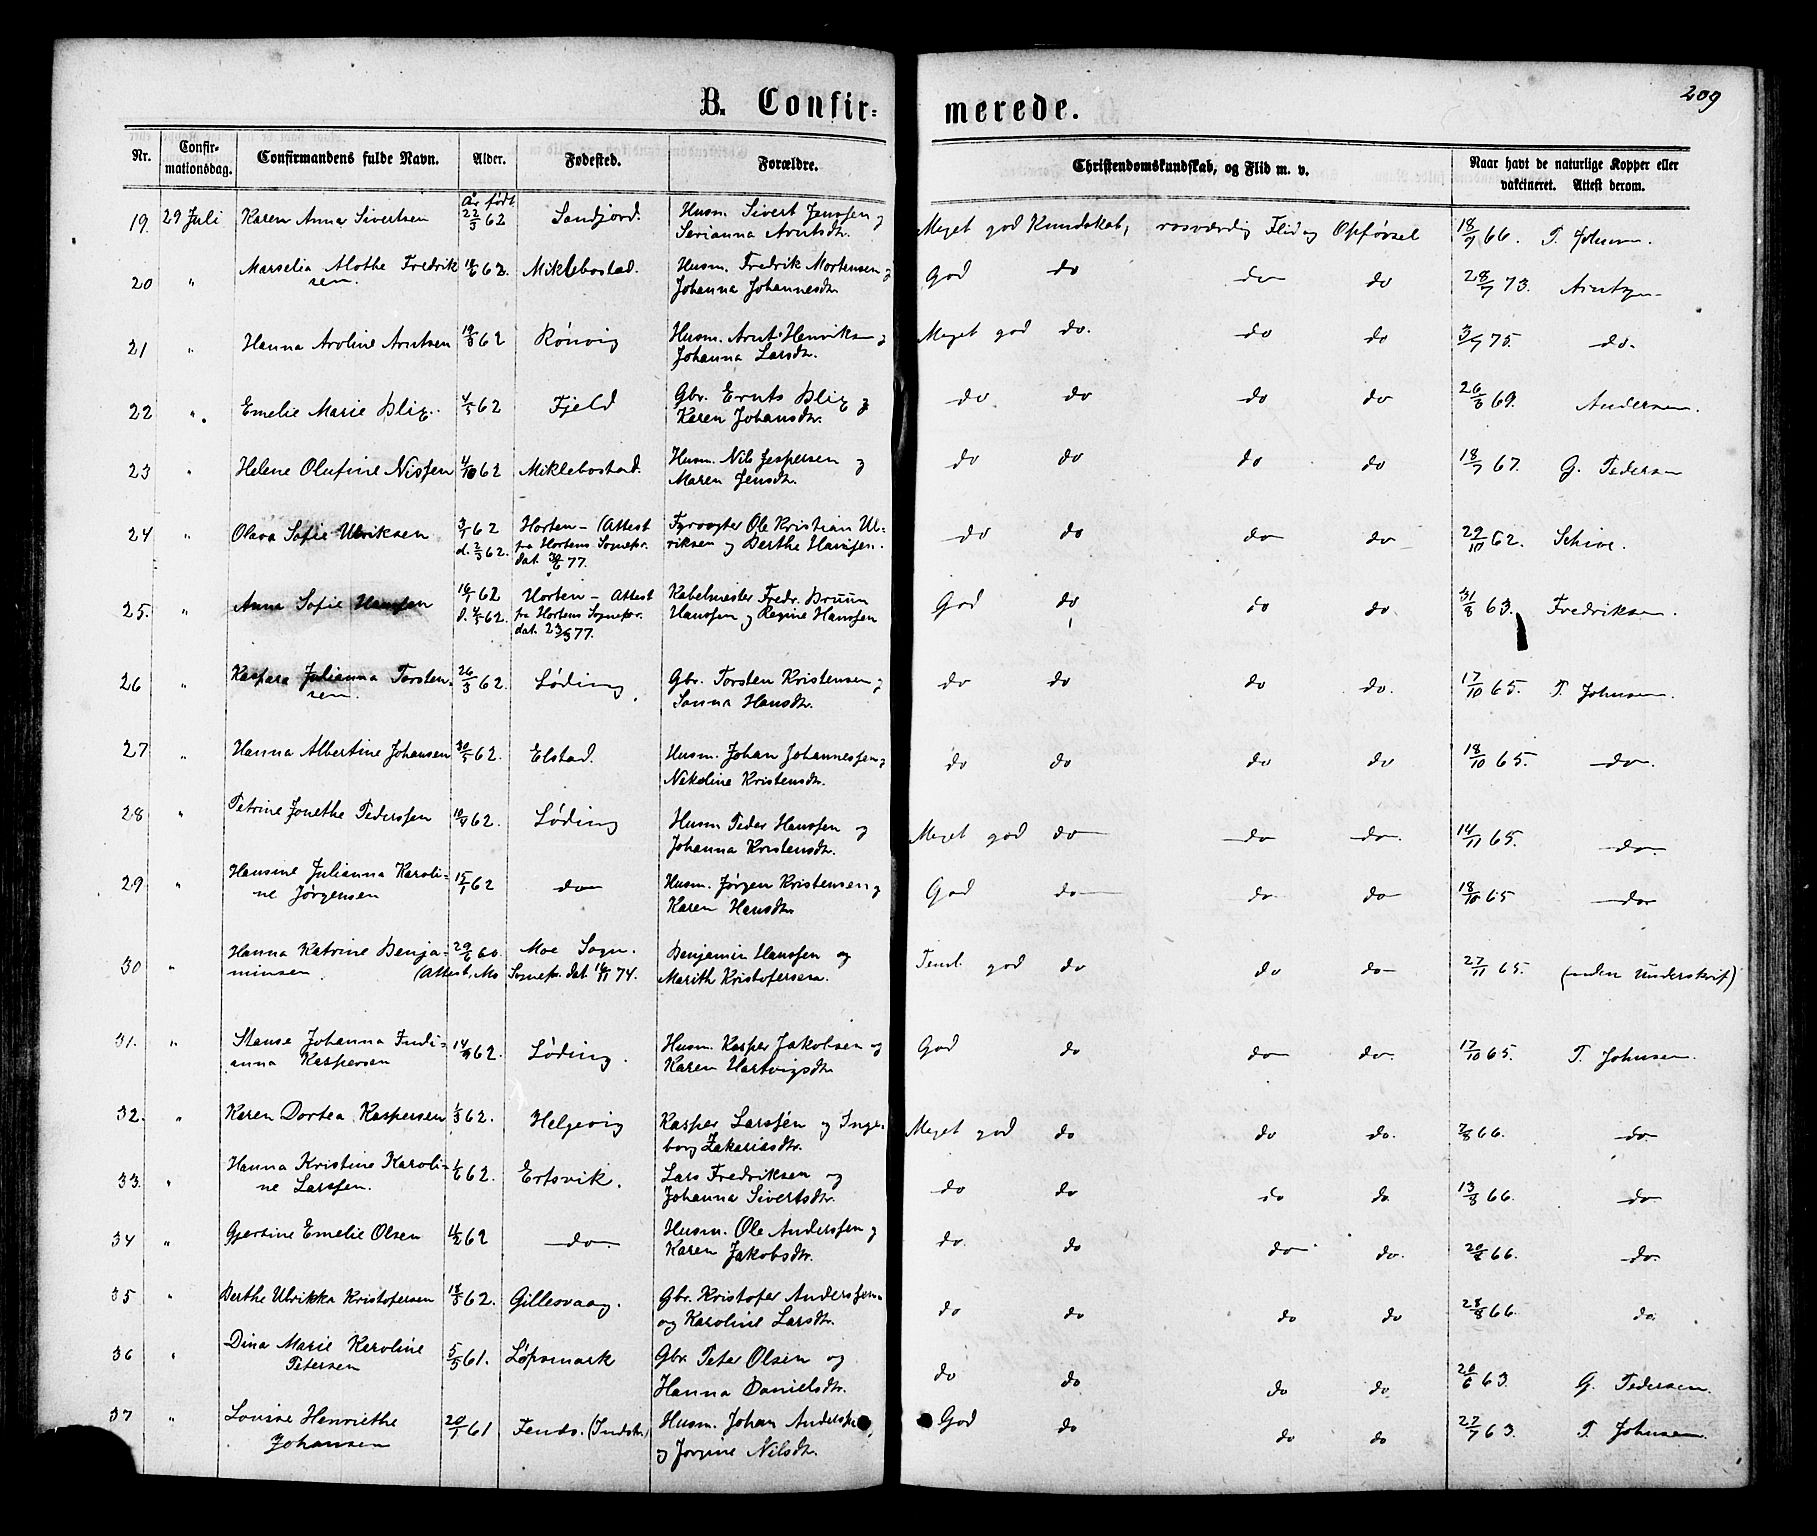 B. Confir-
merede.
209
Nr.
Confir-
mationsdag.
Confirmandens fulde Navn.
Alder.
Fødested.
Forældre.
Christendomskundskab, og Flid m. v.
Naar havt de naturlige Kopper eller
vakcineret. Attest derom.
År født
19. 29 Juli Karen Anna Sivertsen 22/3 62 Sandjord. Husm. Sivert Jenssen og
Serianna Arntsdtr.
Meget god Kundskab, rosværdig Flid og Opførsel 18/9 66. T. Johnsen.
20 " Marselia Alothe Fredrik 18/6 62. Miklebostad. Husm. Fredrik Mortensen og
sen. Johanna Johannesdtr.
God do do do 28/7 73. Arntzen
21 " Hanna Aroline Arntsen 19/3 62 Rönvig Husm. Arnt Henriksen og
Johanna Larsdtr.
Meget god do. do do 3/9 75. do.
22 " Emelie Marie Blix. 4/5 62 Fjeld Gbr. Ernts Blix og
Karen Johansdtr.
do do do do 26/8 69. Andersen.
23 " Helene Olufine Nissen 4/10 62 Miklebostad. Husm. Nils Jespersen og
Maren Jensdtr.
do do do do 18/9 67. G. Pedersen
24 " Olava Sofie Ulriksen 3/1 62 Horten - (Attest Fyrvogter Ole Kristian Ul-
d. 2/3 62. fra Hortens Sognepr. riksen og Berthe Hansen.
dat. 30/6 77.
do do do do 29/10 62. Schive.
25. " Anna Sofie Hanssen 16/1 62 Horten - Attest Kabelmester Fredr. Bruun
d. 4/5 62. fra Hortens Sognepr. Hanssen og Regine Hanssen
dat. 23/3 77.
God do do do 31/8 63. Fredriksen.
26 " Kaspara Julianna Torsten- 26/3 62. Løding. Gbr. Torsten Kristensen og
sen. Sanna Hansdtr.
do do do do. 17/10 65. T. Johnsen.
27 " Hanna Albertine Johansen 30/5 62. Elstad. Husm. Johan Johannessen og
Nikoline Kristensdtr.
do do do do 18/10 65. do.
28 " Petrine Jonethe Pederssen 10/9 62. Løding Husm Peder Hanssen og
Johanna Kristensdtr.
Meget god do do do. 14/11 65. do.
29 " Hansine Julianna Karoli- 15/1 62 do Husm. Jørgen Kristensen og
ne Jørgensen Karen Hansdtr.
God do do do 18/10 65 do
30 " Hanna Katrine Benja- 29/6 60. Moe Sogn. Benjamin Hanssen og
minsen. (Attest. Mo Sognepr. dat 16/11 74. Marith Kristofersen.
Teml. god do do do 27/11 65. (uden Underskrift)
31. " Stense Johanna Indi- 14/9 62. Løding. Husm. Kasper Jakobsen og
anna Kaspersen Karen Hartvigsdtr
God do do do. 17/10 65. T. Johnsen.
32. " Karen Dortea Kaspersen 1/3 62. Helgevig Kasper Larssen og Inge-
borg Zakariasdtr.
Meget god do do do. 7/8 66. do
33. " Hanna Kristine Karoli- 1/6 62. Ertsvik. Lars Fredriksen og
ne Larssen. Johanna Sivertsdtr.
do do do do. 13/8 66. do
34 " Gjertine Emelie Olsen 11/2 62 do. Husm. Ole Anderssen og
Karen Jakobsdtr.
do. do do do. 20/8 66. do.
35 " Berthe Ulrikka Kristofersen 18/3 62. Gillesvaag. Gbr. Kristofer Anderssen
og Karoline Larsdtr.
do do do do 28/8 66. do.
36 " Dina Marie Karoline 5/5 61. Løpsmark Gbr. Peter Olsen og
Petersen Hanna Danielsdtr.
do do do do 20/6 63. G. Pedersen.
37 " Lovise Henriethe 20/1 61 Fends. (Indstr.) Husm. Johan Anderssen
Johansen og Jørgine Nilsdtr.
God do do do 27/7 63. T. Johnsen.